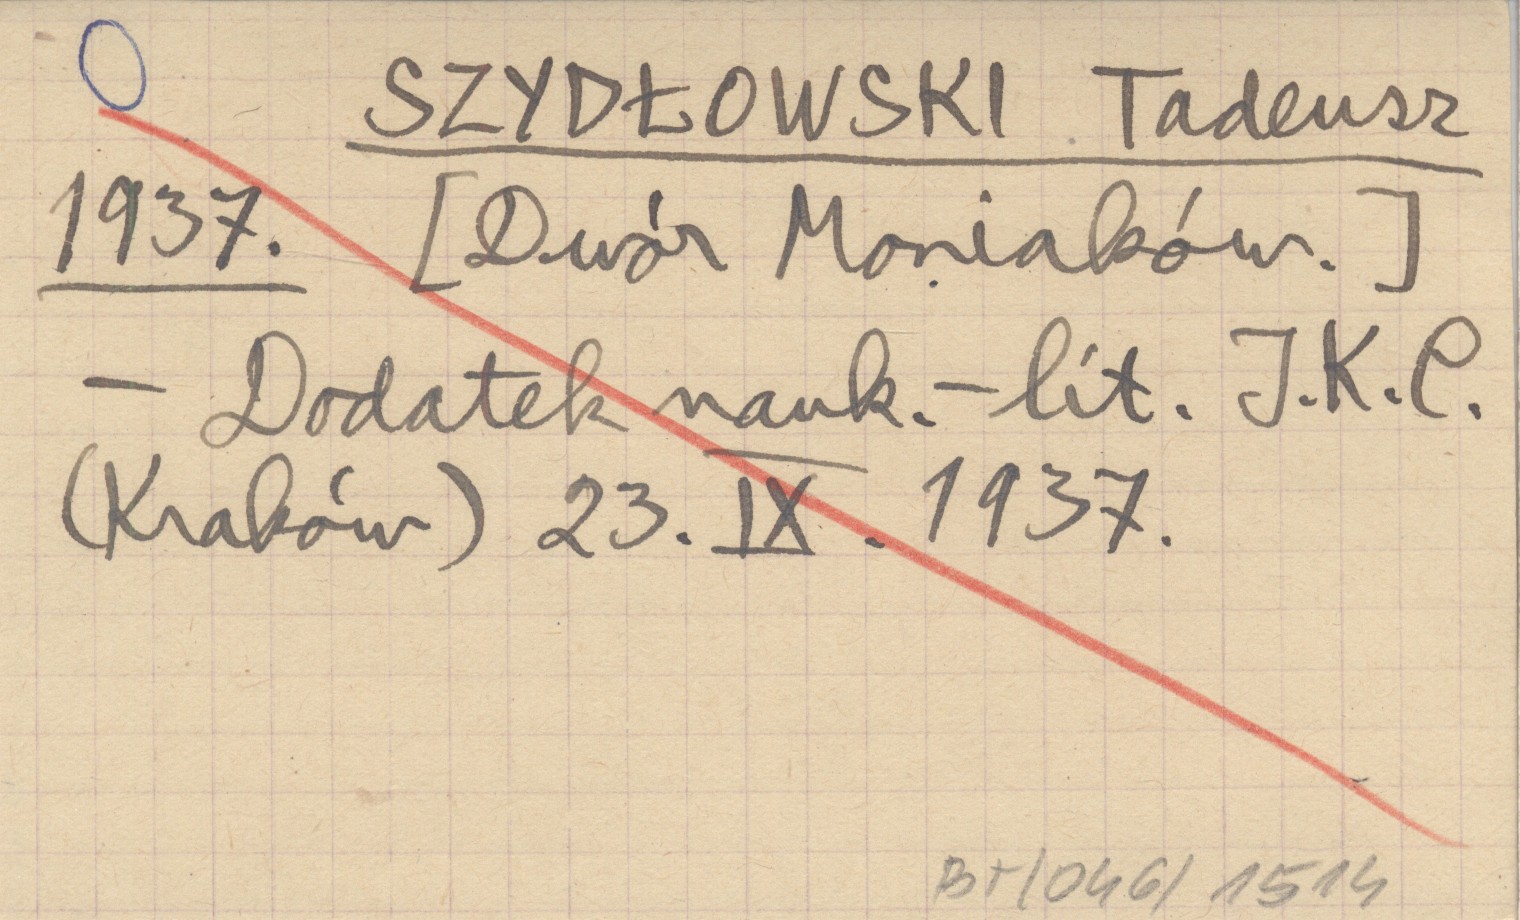 SZYDŁOWSKI Tadeusz
1937. [Dwór Moniaków.]
– Dodatek nauk.–lit. I.K.C.
(Kraków) 23. IX. 1937.
BT/046/ 1514